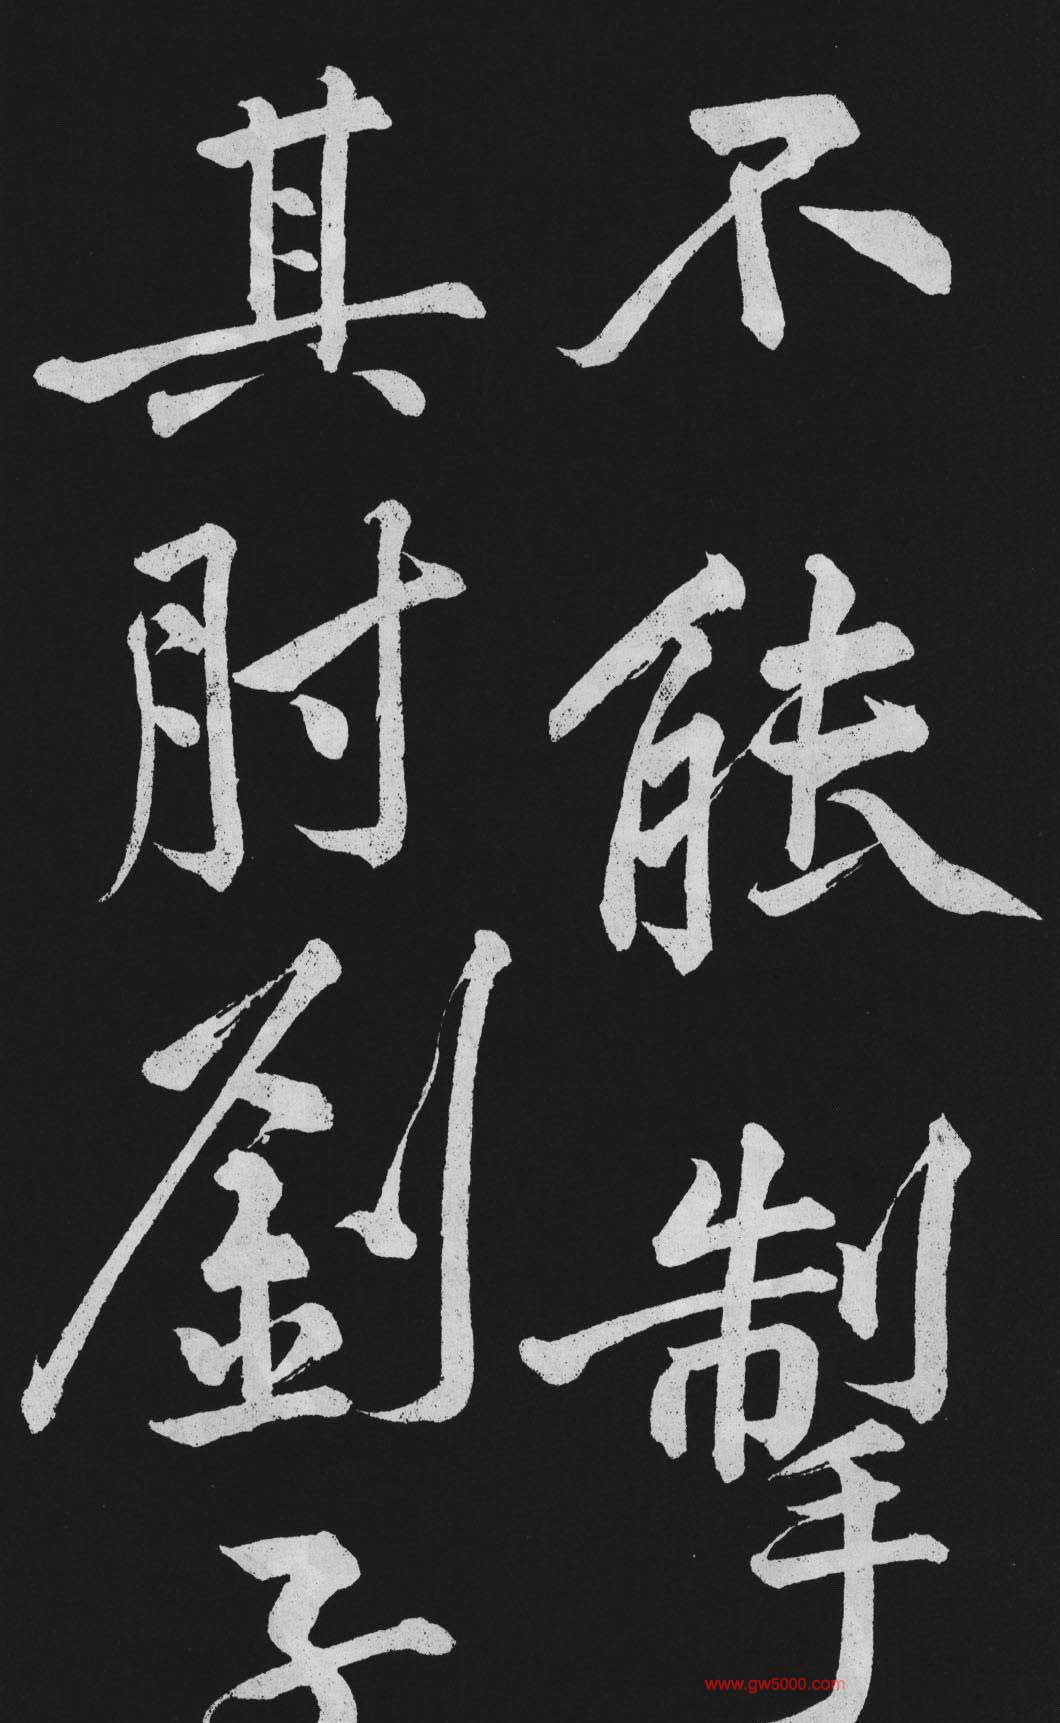 不能掣
其肘劉子
www.gw5000.com